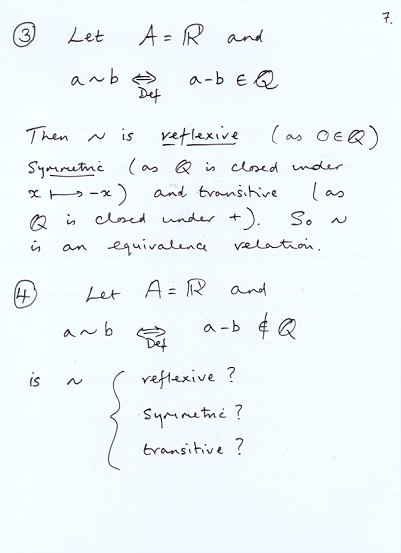 7.
③ Let A = ℝ and
a ~ b ⇔ a - b ∈ ℚ
Def
Then ~ is reflexive (as 0 ∈ ℚ)
Symmetric (as ℚ is closed under
x ↦ -x) and transitive (as
ℚ is closed under +). So ~
is an equivalence relation.
④ Let A = ℝ and
a ~ b ⇔ a - b ∉ ℚ
Def
is ~ { reflexive ?
Symmetric ?
transitive ?